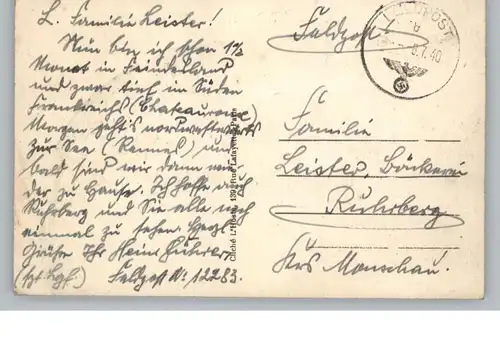 L. Familie Leister!
Nun bin ich schon 1½
Monat in Feindesland
und zwar tief im Süden
Frankreichs (Chateauroux)
Morgen geht's nordwestwärts
zur See (Rennes) und
bald sind wir dann wie-
der zu Hause. Ich hoffe auch
Ruhrberg und Sie alle noch
einmal zu sehen. Herzl.
Grüße Ihr Heinz
Feldpost Nr. 12283.
Cliché L'Hoste 139, Rue Lafayette Paris
Feldpost
FELDPOST
8.7.40
Familie
Leister, Bäckerei
Ruhrberg
Krs Monschau.